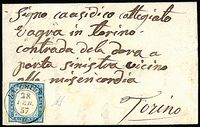 Signo causidico collegiato
in Torino
contrada della dora a
porta sinistra vicino
alla misericordia
Torino
28
57